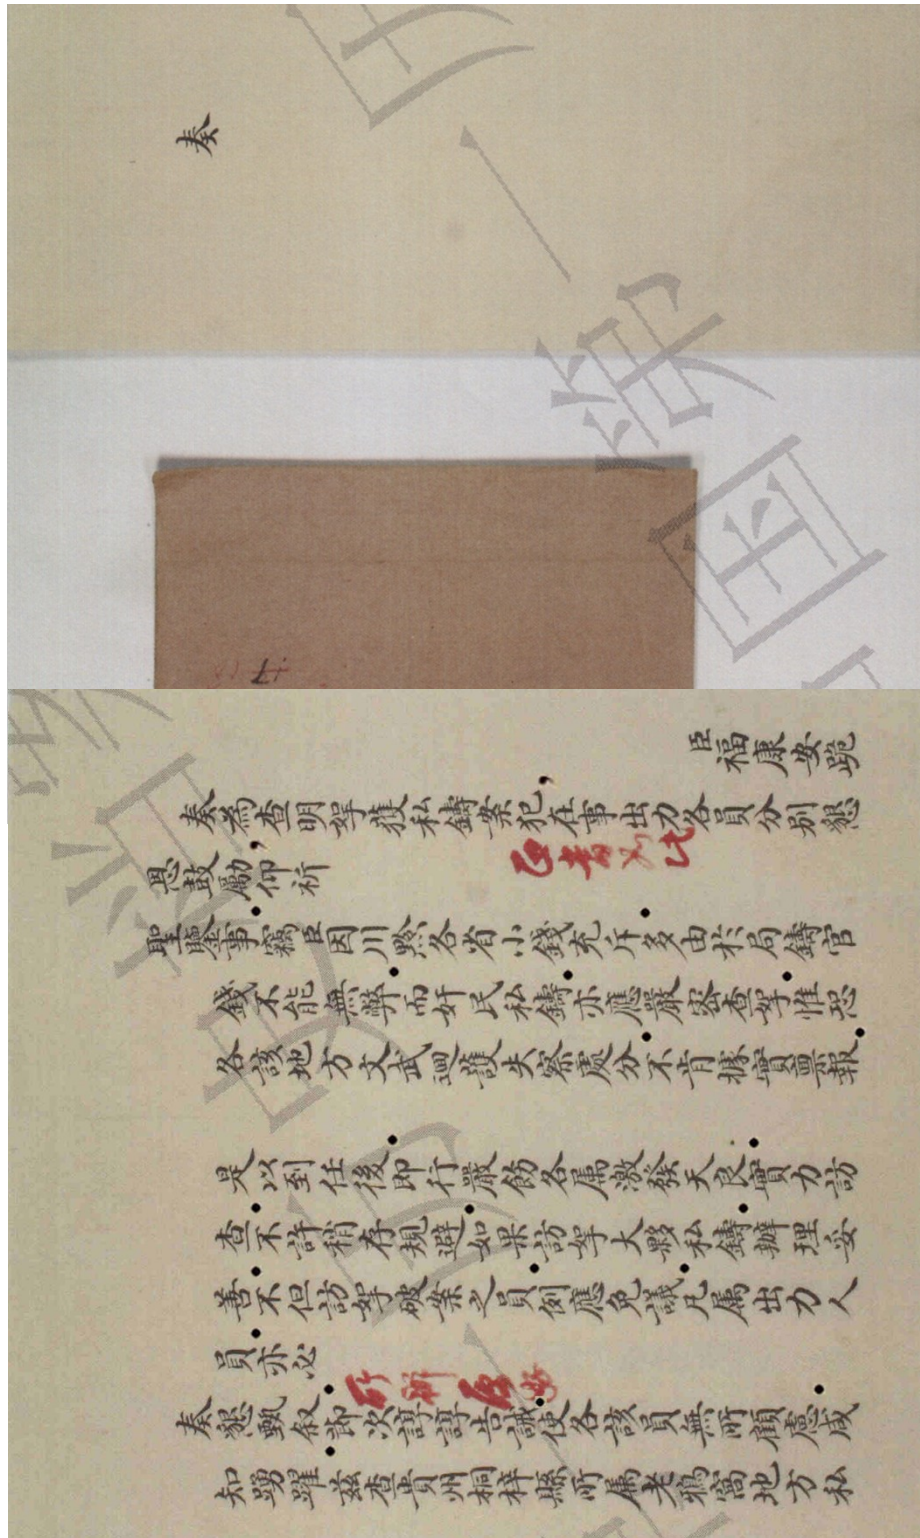 奏
臣福康安跪
奏為查明拏獲私鑄案犯在事出力各員分別懇
恩鼓勵仰祈
聖鑒事竊臣因川黔各省小錢充斥多由於局鑄官
錢不能無弊而奸民私鑄亦應嚴密查拏惟恐
各該地方文武迴護失察處分不肯據實稟報
是以到任後即行嚴飭各属激發天良實力訪
查不許稍存規避如果訪拏大夥私鑄辦理妥
善不但訪拏破案之員例應免議凡属出力人
員亦必
奏懇甄敘節次諄諄告誡使各該員無所顧慮咸
知踴躍茲查貴州桐梓縣所属老鴉窩地方私